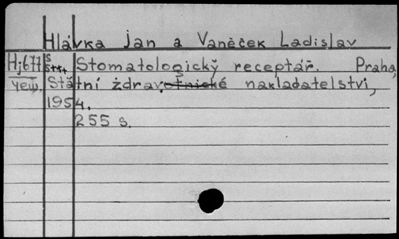 Hlávka Jan a Vaněček Ladislav
Hj677 Stomatologický receptář. Praha,
Státní zdravotnické nakladatelství,
1954.
255 s.